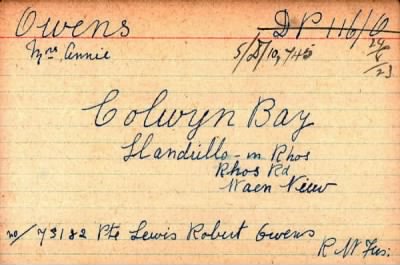 Owens
DP 116/0
Mrs Annie
5/D/10,745
24/5/23
Colwyn Bay
Llandrillo-in Rhos
Rhos Rd
Waen View
no/73182 Pte Lewis Robert Owens
R. W. Fus: